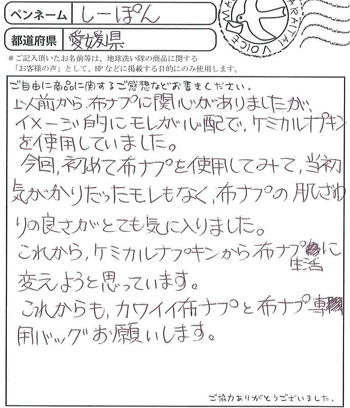 ペンネーム しーぽん
都道府県 愛媛県
※ご記入頂いたお名前等は、地球洗い隊の商品に関する
「お客様の声」として、HPなどに掲載する目的にのみ使用します。
ご自由に商品に関するご感想などお書きください。
以前から布ナプに関心がありましたが、
イメージ的にモレが心配で、ケミカルナプキン
を使用していました。
今回、初めて布ナプを使用してみて、当初
気がかりだったモレもなく、布ナプの肌ざわ
りの良さがとても気に入りました。
これから、ケミカルナプキンから布ナプ生活に
変えようと思っています。
これからも、カワイイ布ナプと布ナプ専
用バッグお願いします。
ご協力ありがとうございました。